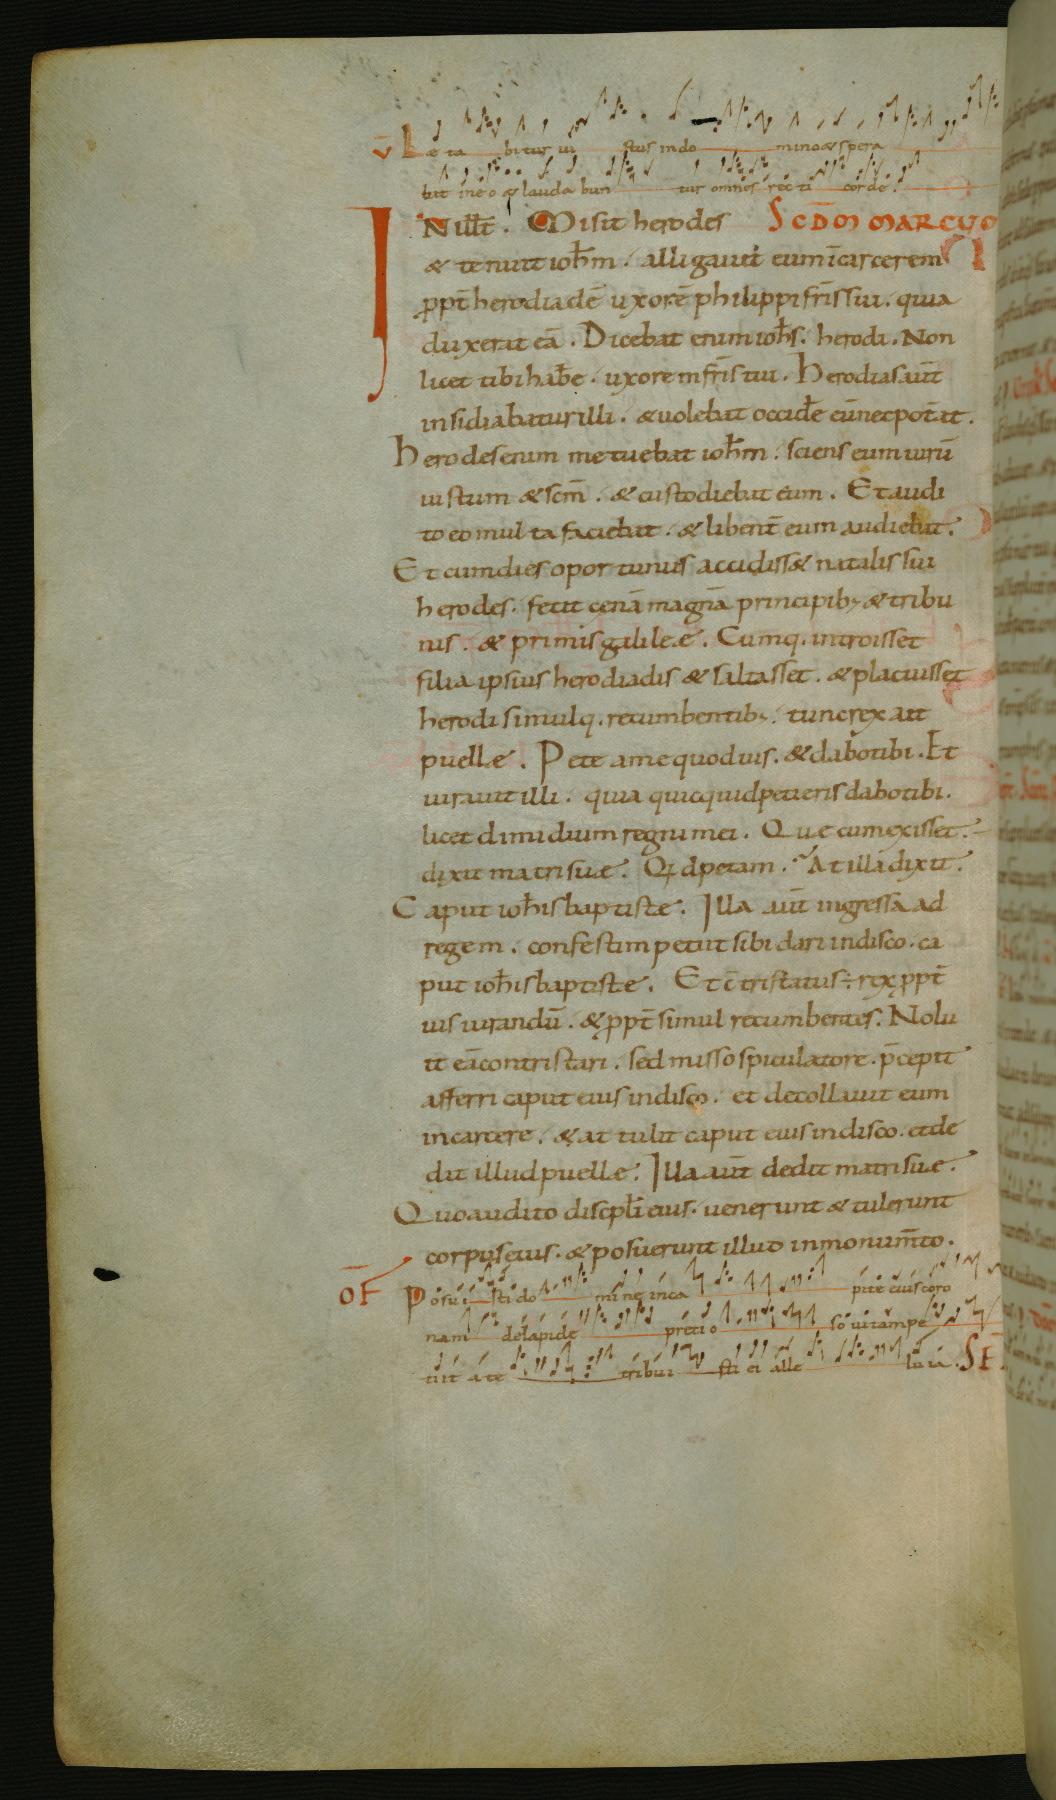 v Læ ta bitur iu stus in do mino & spera
bit in eo & lauda bun tur omnes recti corde.
IN illt. Misit herodes SCDM MARCUM
& tenuit ioh̄m. alligauit eum īcarcerem
ꝓpt̄ herodiadē uxorē philippi fr̄is sui. quia
duxerat eā. Dicebat enim ioh̄s. herodi. Non
licet tibi hab̄e. uxorem fr̄is tui. Herodias aut̄
insidiabatur illi. & uolebat occid̄e eū nec pot̄at.
Herodes enim metuebat ioh̄m. sciens eum uirū
iustum & scm̄. & custodiebat eum. Et audi
to eo multa faciebat. & libent̄ eum audiebat.
Et cum dies oportunus accidiss& natalis sui
herodes. fecit cenā magnā principib; & tribu
nis. & primis galileę. Cumq. introisset
filia ipsius herodiadis & saltasset. & placuisset
herodi simulq. recumbentib;. tunc rex ait
puellę. Pete a me quod uis. & dabo tibi. Et
iurauit illi. quia quicquid petieris dabo tibi.
licet dimidium regni mei. Que cum exisset.
dixit matri suæ. Qd petam. At illa dixit.
Caput ioh̄is baptistæ. Illa aut̄ ingressa ad
regem. confestim petit sibi dari in disco. ca
put ioh̄is baptistę. Et c̄tristatus: rex ꝓpt̄
ius iurandū. & ꝓpt̄ simul recumbentes. Nolu
it eā contristari. sed misso spiculatore. p̄cepit
afferri caput eius in disco. et decollauit eum
in carcere. & at tulit caput eius in disco. et de
dit illud puellę. Illa aut̄ dedit matri suę.
Quo audito discpl̄i eius. uenerunt & tulerunt
corpus eius. & posuerunt illud in monum̄to.
OF Posui sti do mine in ca pite eius coro
nam de lapide pretio so uitam pe
tiit a te tribui sti ei alle luia. SE